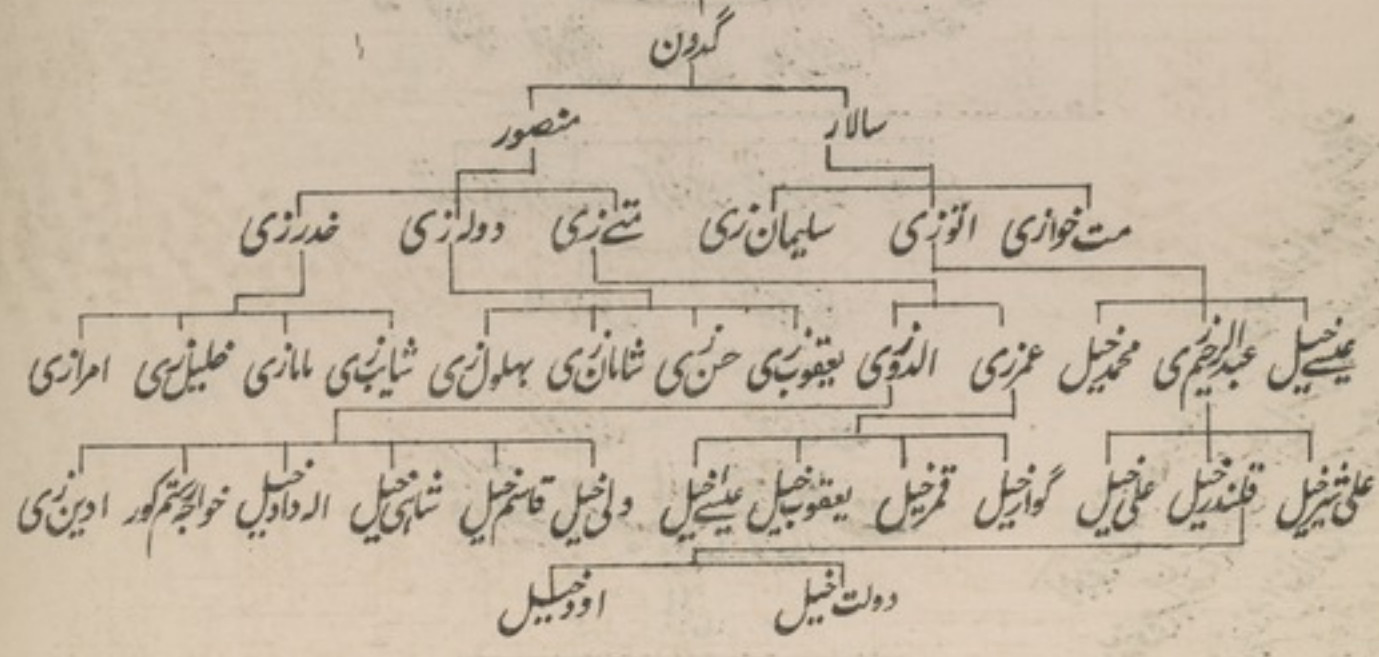 گدون
سالار منصور
مت خوازی اتوزی سلیمان زی متے زی دولہ زی خدرزی
عیسے خیل عبدالرحیم زی محمد خیل عمرزی الدوزی یعقوب زی حسن زی شامان زی بہلول زی شایب زی مامازی خلیل زی امرازی
علی شیر خیل قلندر خیل علی خیل گوار خیل قمر خیل یعقوب خیل عیسے خیل ولی خیل قاسم خیل شاہی خیل الہ داد خیل خواجہ رستم کور ادین زی
دولت خیل اود خیل